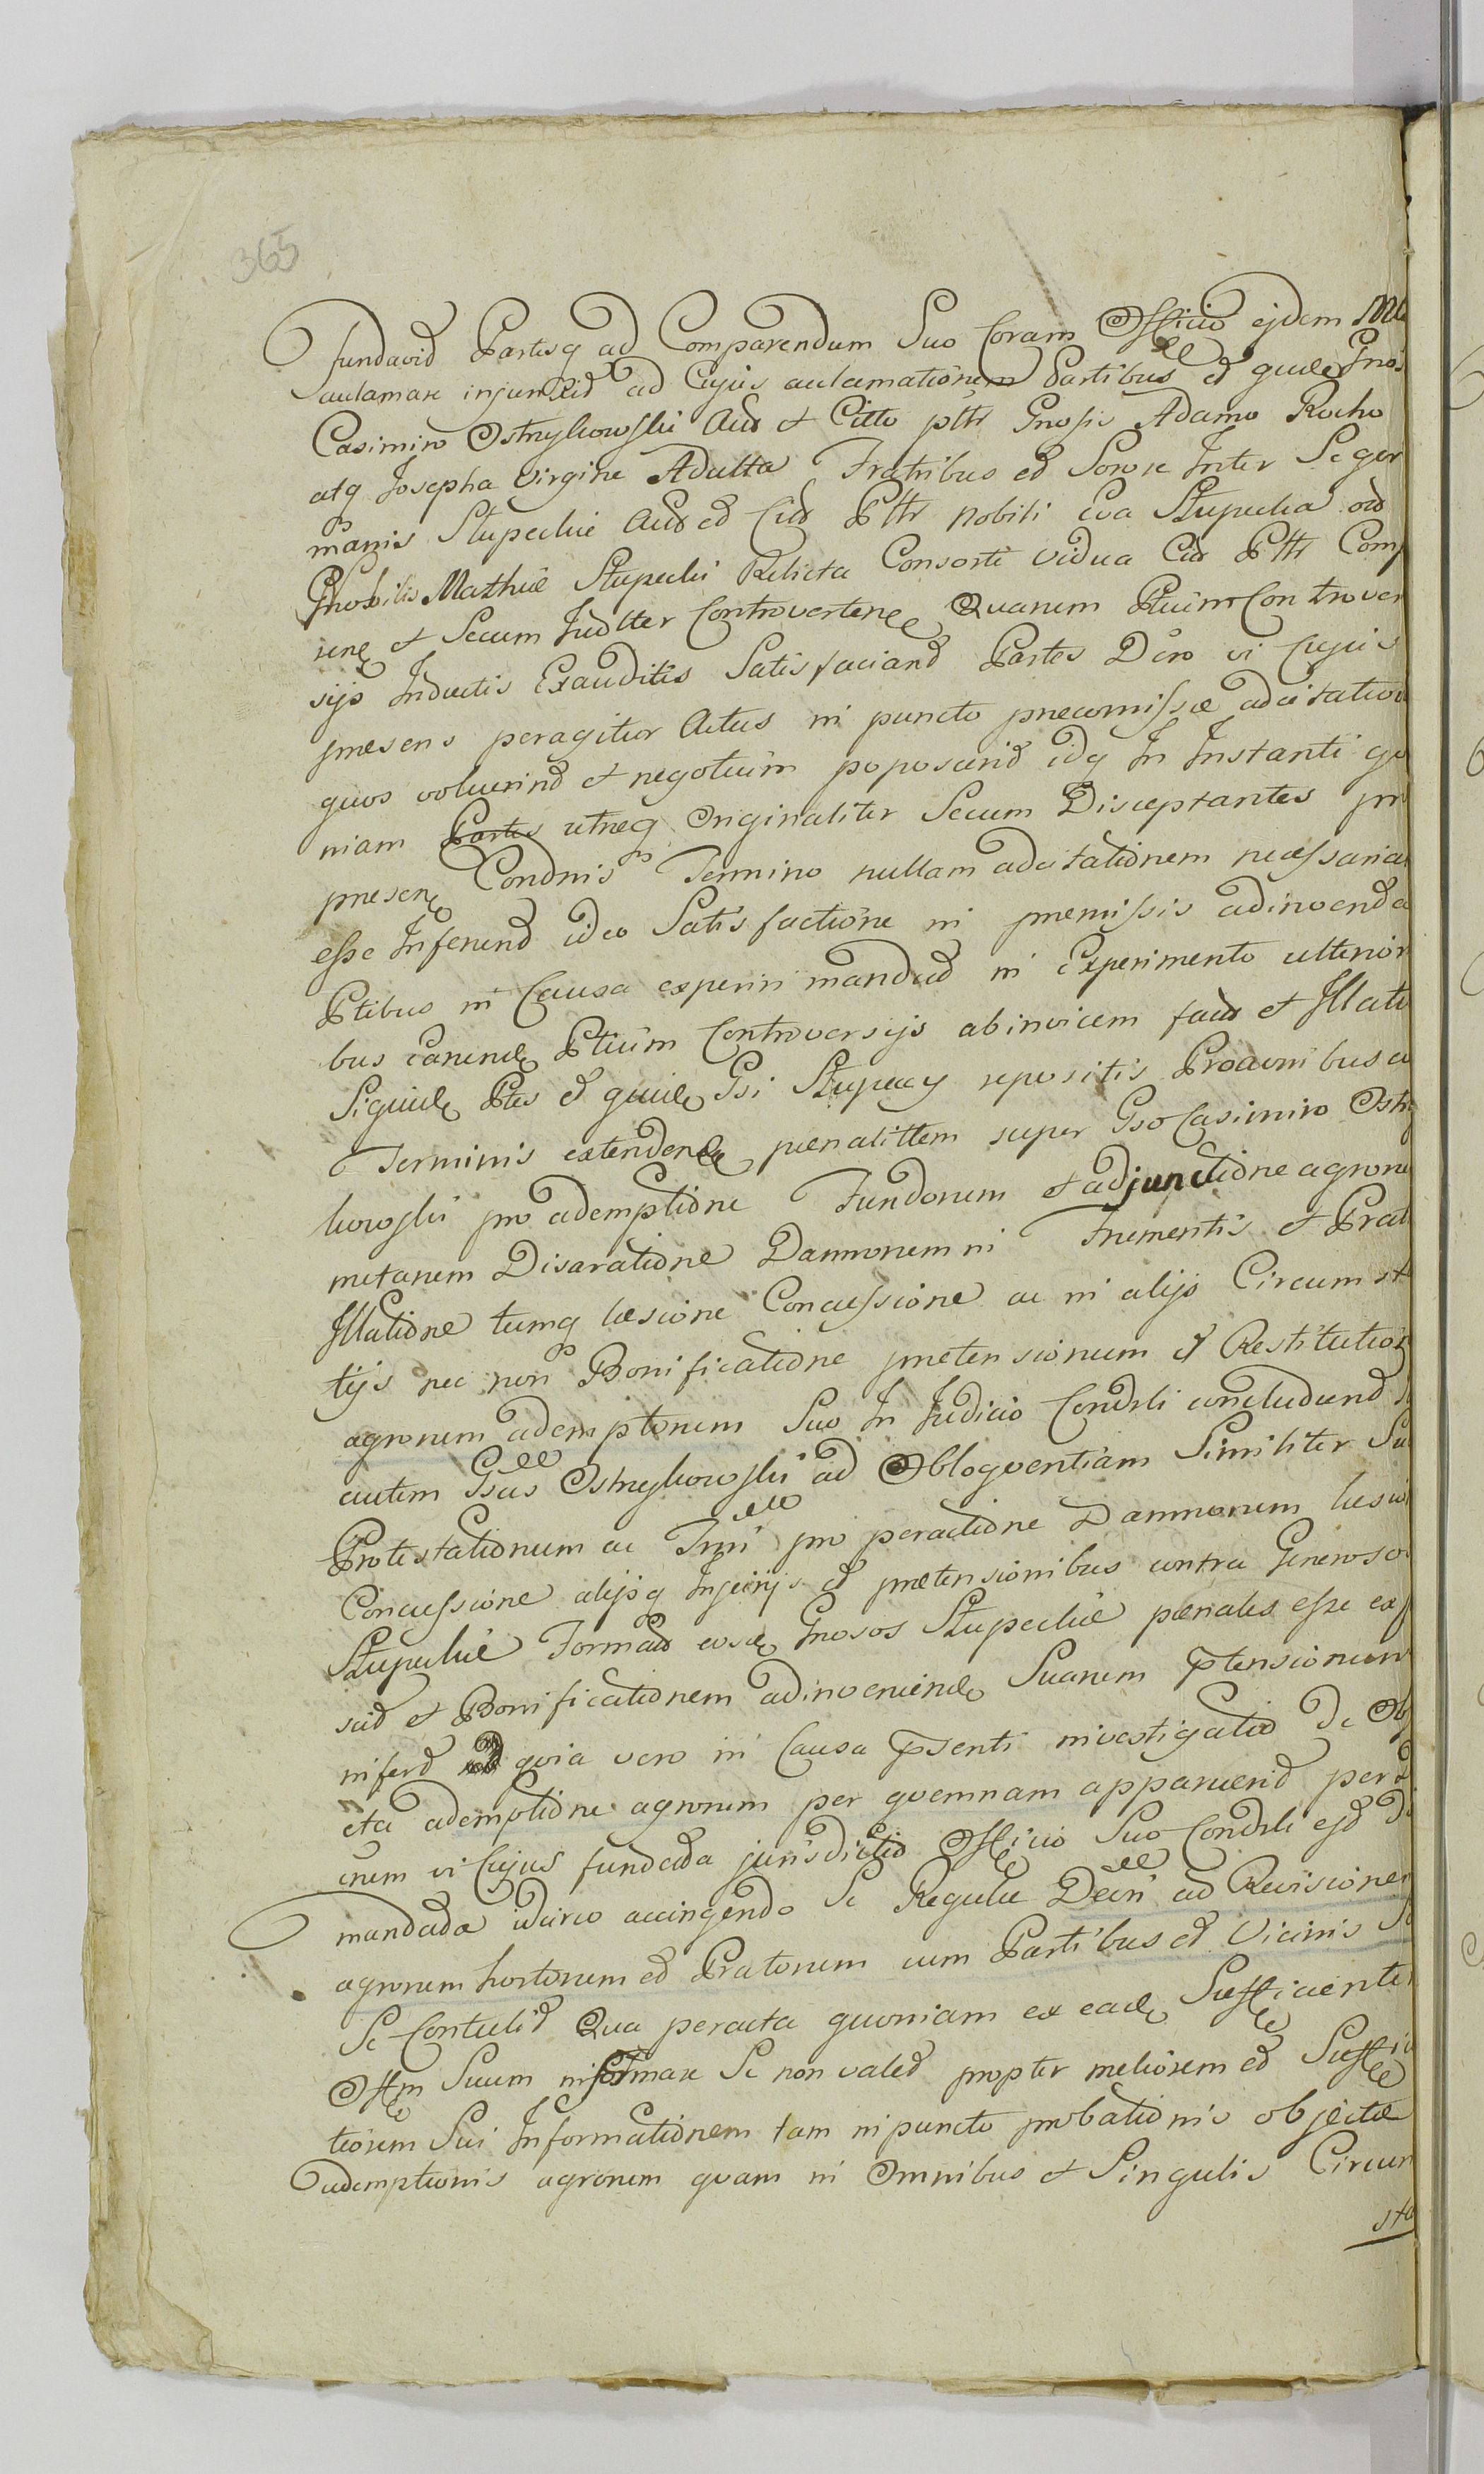 365
fundavid Partesq ad Comparendum Suo Coram Officio ejdem
aclamare injunxid ad Cujus aclamationem Partibus ed quid Gnoso
Casimiro Ostrykowski Actt et Citto ptte Gnosis Adamo Rocho
atq Josepha Virgine Adulta Fratribus ed Sorore Inter Se ger
manis Stupeckie Actt ed Citt Ptte Nobili Eva Stupecka
Gnobilis Mathiæ Stupecki Relicta Consorte Vidua Citt Ptte Comp
ren et Secum Judlter Controverten Quarum Ptium Controver
sijs Inductis Exauditis Satisfaciand Partes Dcro vi Cujus
præsens peragitur Actus in puncto præcomissæ adcitation
quos voluerind et negotium poposcerid idq In Instanti quo
niam Partes utreq Originaliter Secum Disceptantes
presen Condnis Termino nullam adcitationem necessaria
esse Inferend ideo Satisfactione in premissis adinvenda
Ptibus in Causa experiri mandad in Experimento ulterior
bus earund Ptium Controversijs abinvicem factt et Illatt
Siquid Ptes ed quid Gsi Stupeccy repositis Proacinibus
Terminis extenden pænalittem super Gso Casimiro Ostry
kowski pro ademptione Fundorum et adjunctione agroru
metarum Disaratione Damnorum in Frumentis et Prat
Illatione tumq læsione Concussione ac in alijs Circumst
tijs nec non Bonificatione prætensionum et Restitution
agrorum ademptorum Suo In Judicio Condrli concludend
autem Gsus Ostrykowski ad Obloquentiam Similiter
Protestationum ac Trri pro peractione Damnorum læsio
Concussione alijsq Injurijs ed prætensionibus contra Generoso
Stupeckie Formatt eosd Gnosos Stupeckie pænales esse
scid et Bonificationem adinveniend Suarum ptensionum
inferd quia vero in Causa psenti investigatio de Obj
cta ademptione agrorum per quemnam apparuerid per
crum vi Cujus fundada jurisdictio Officio Suo Condrli ejd
mandada idcirco accingendo Se Regulæ Decri ad Revisionem
agrorum hortorum ed Pratorum cum Partibus ed Vicinis
Se Contulid Qua peracta quoniam ex ead Sufficienter
Offm Suum informare Se non valed propter meliorem ed Suffici
tiorem Sui Informationem tam in puncto probationis objectæ
ademptionis agrorum quam in Omnibus et Singulis Circum
sta